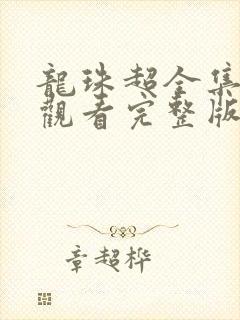 龍珠超全集
觀看完整版
章超桦